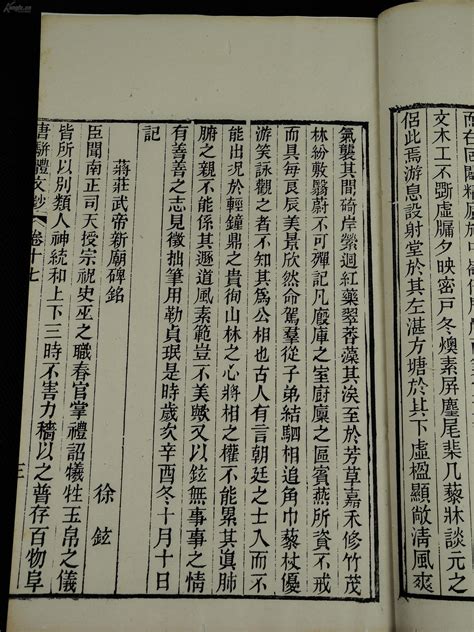 文木工不斲虛牖夕映密戸冬燠素麈尾棐几藜牀談元之
侶此焉游息設射堂於其左湛方塘於其下虛楹顯敞清風爽
氣襲其間碕岸縈迴紅藥翠菩藻其涘至於芳草嘉禾修竹茂
林紛敷翳蔚不可殫記凡廄庫之室廚廩之區賓燕所資不戒
而具每良辰美景欣然命駕羣從子弟結駟相追角巾藜杖優
游笑詠觀之者不知其爲公相也古人有言朝廷之士入而不
能出況於輕鐘鼎之貴徇山林之心將相之權不能累其眞肺
腑之親不能係其遯道風素範豈不美歟又以鉉無事事之情
有善善之志見徵拙筆用勒貞珉是時歲次辛酉冬十月十日
記
蔣莊武帝新廟碑銘
徐鉉
臣聞南正司天授宗祝史巫之職春官掌禮詔犧牲玉帛之儀
皆所以別類人神統和上下三時不害力穡以之普存百物阜
唐駢體文鈔 卷十七 三